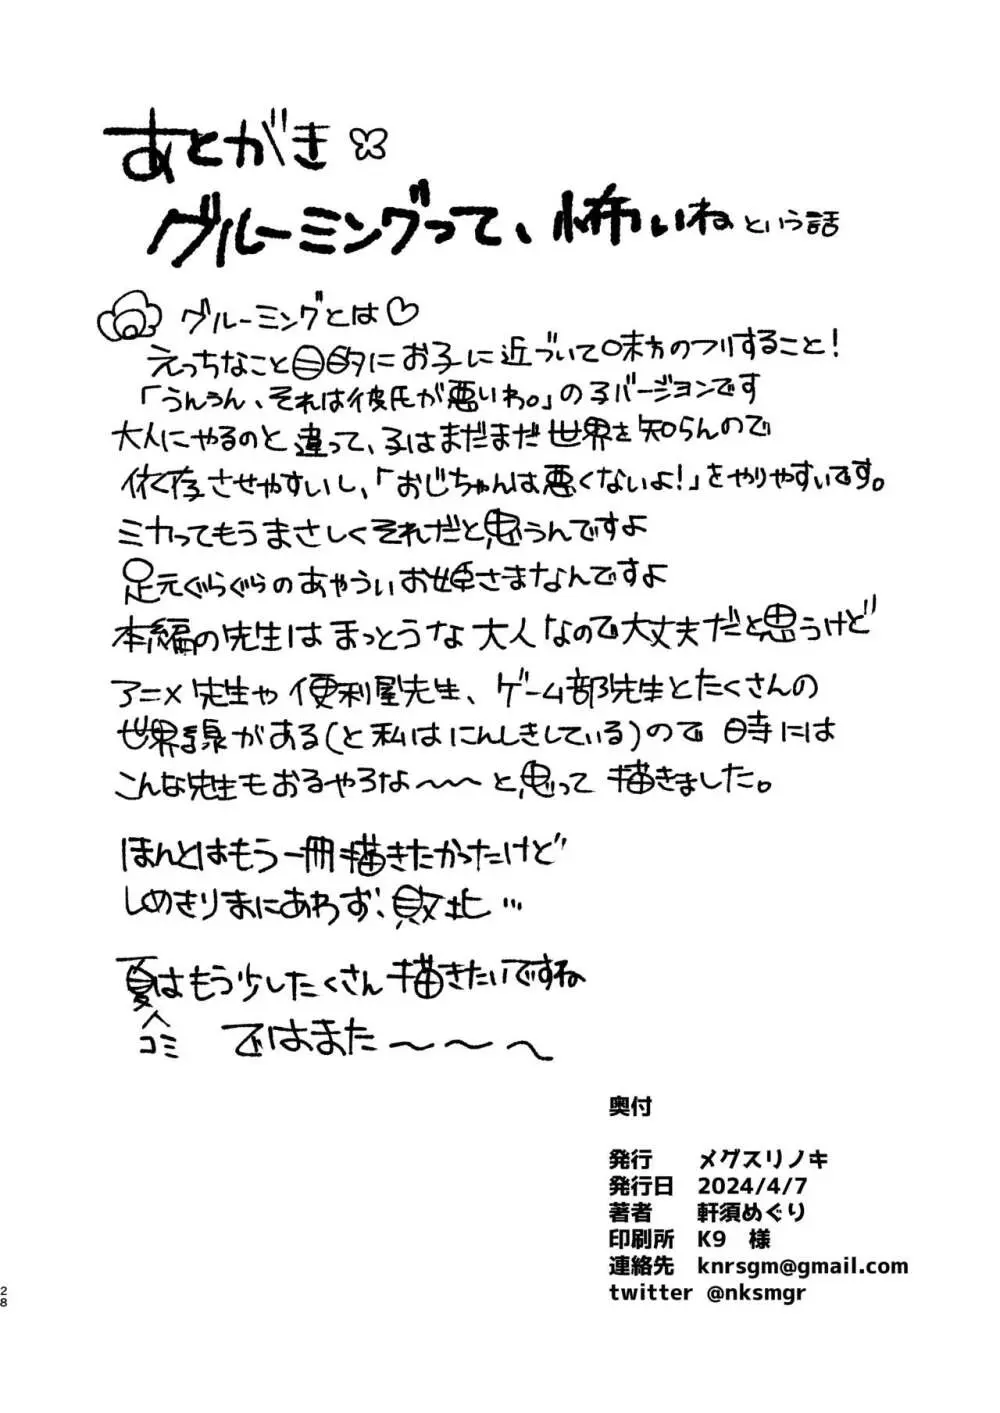 あとがき
グルーミングって、怖いね という話
グルーミングとは♡
えっちなこと目的にお子に近づいて味方のフリすること!
「うんうん、それは彼氏が悪いわ。」の子バージョンです
大人にやるのと違って、子はまだまだ世界を知らんので
依存させやすいし、「おじちゃんは悪くないよ!」をやりやすいです。
ミカってもうまさしくそれだと思うんですよ
足元ぐらぐらのあやういお姫さまなんですよ
本編の先生はまっとうな大人なので大丈夫だと思うけど
アニメ先生や便利屋先生、ゲーム部先生とたくさんの
世界線がある(と私はにんしきしている)ので時には
こんな先生もおるやろな〜〜と思って描きました。
ほんとはもう一冊描きたかったけど
しめきりまにあわず、敗北…
夏はもう少したくさん描きたいですね
コミ ではまた〜〜〜
奥付
発行 メグスリノキ
発行日 2024/4/7
著者 軒須めぐり
印刷所 K9 様
連絡先 knrsgm@gmail.com
twitter @nksmgr
28